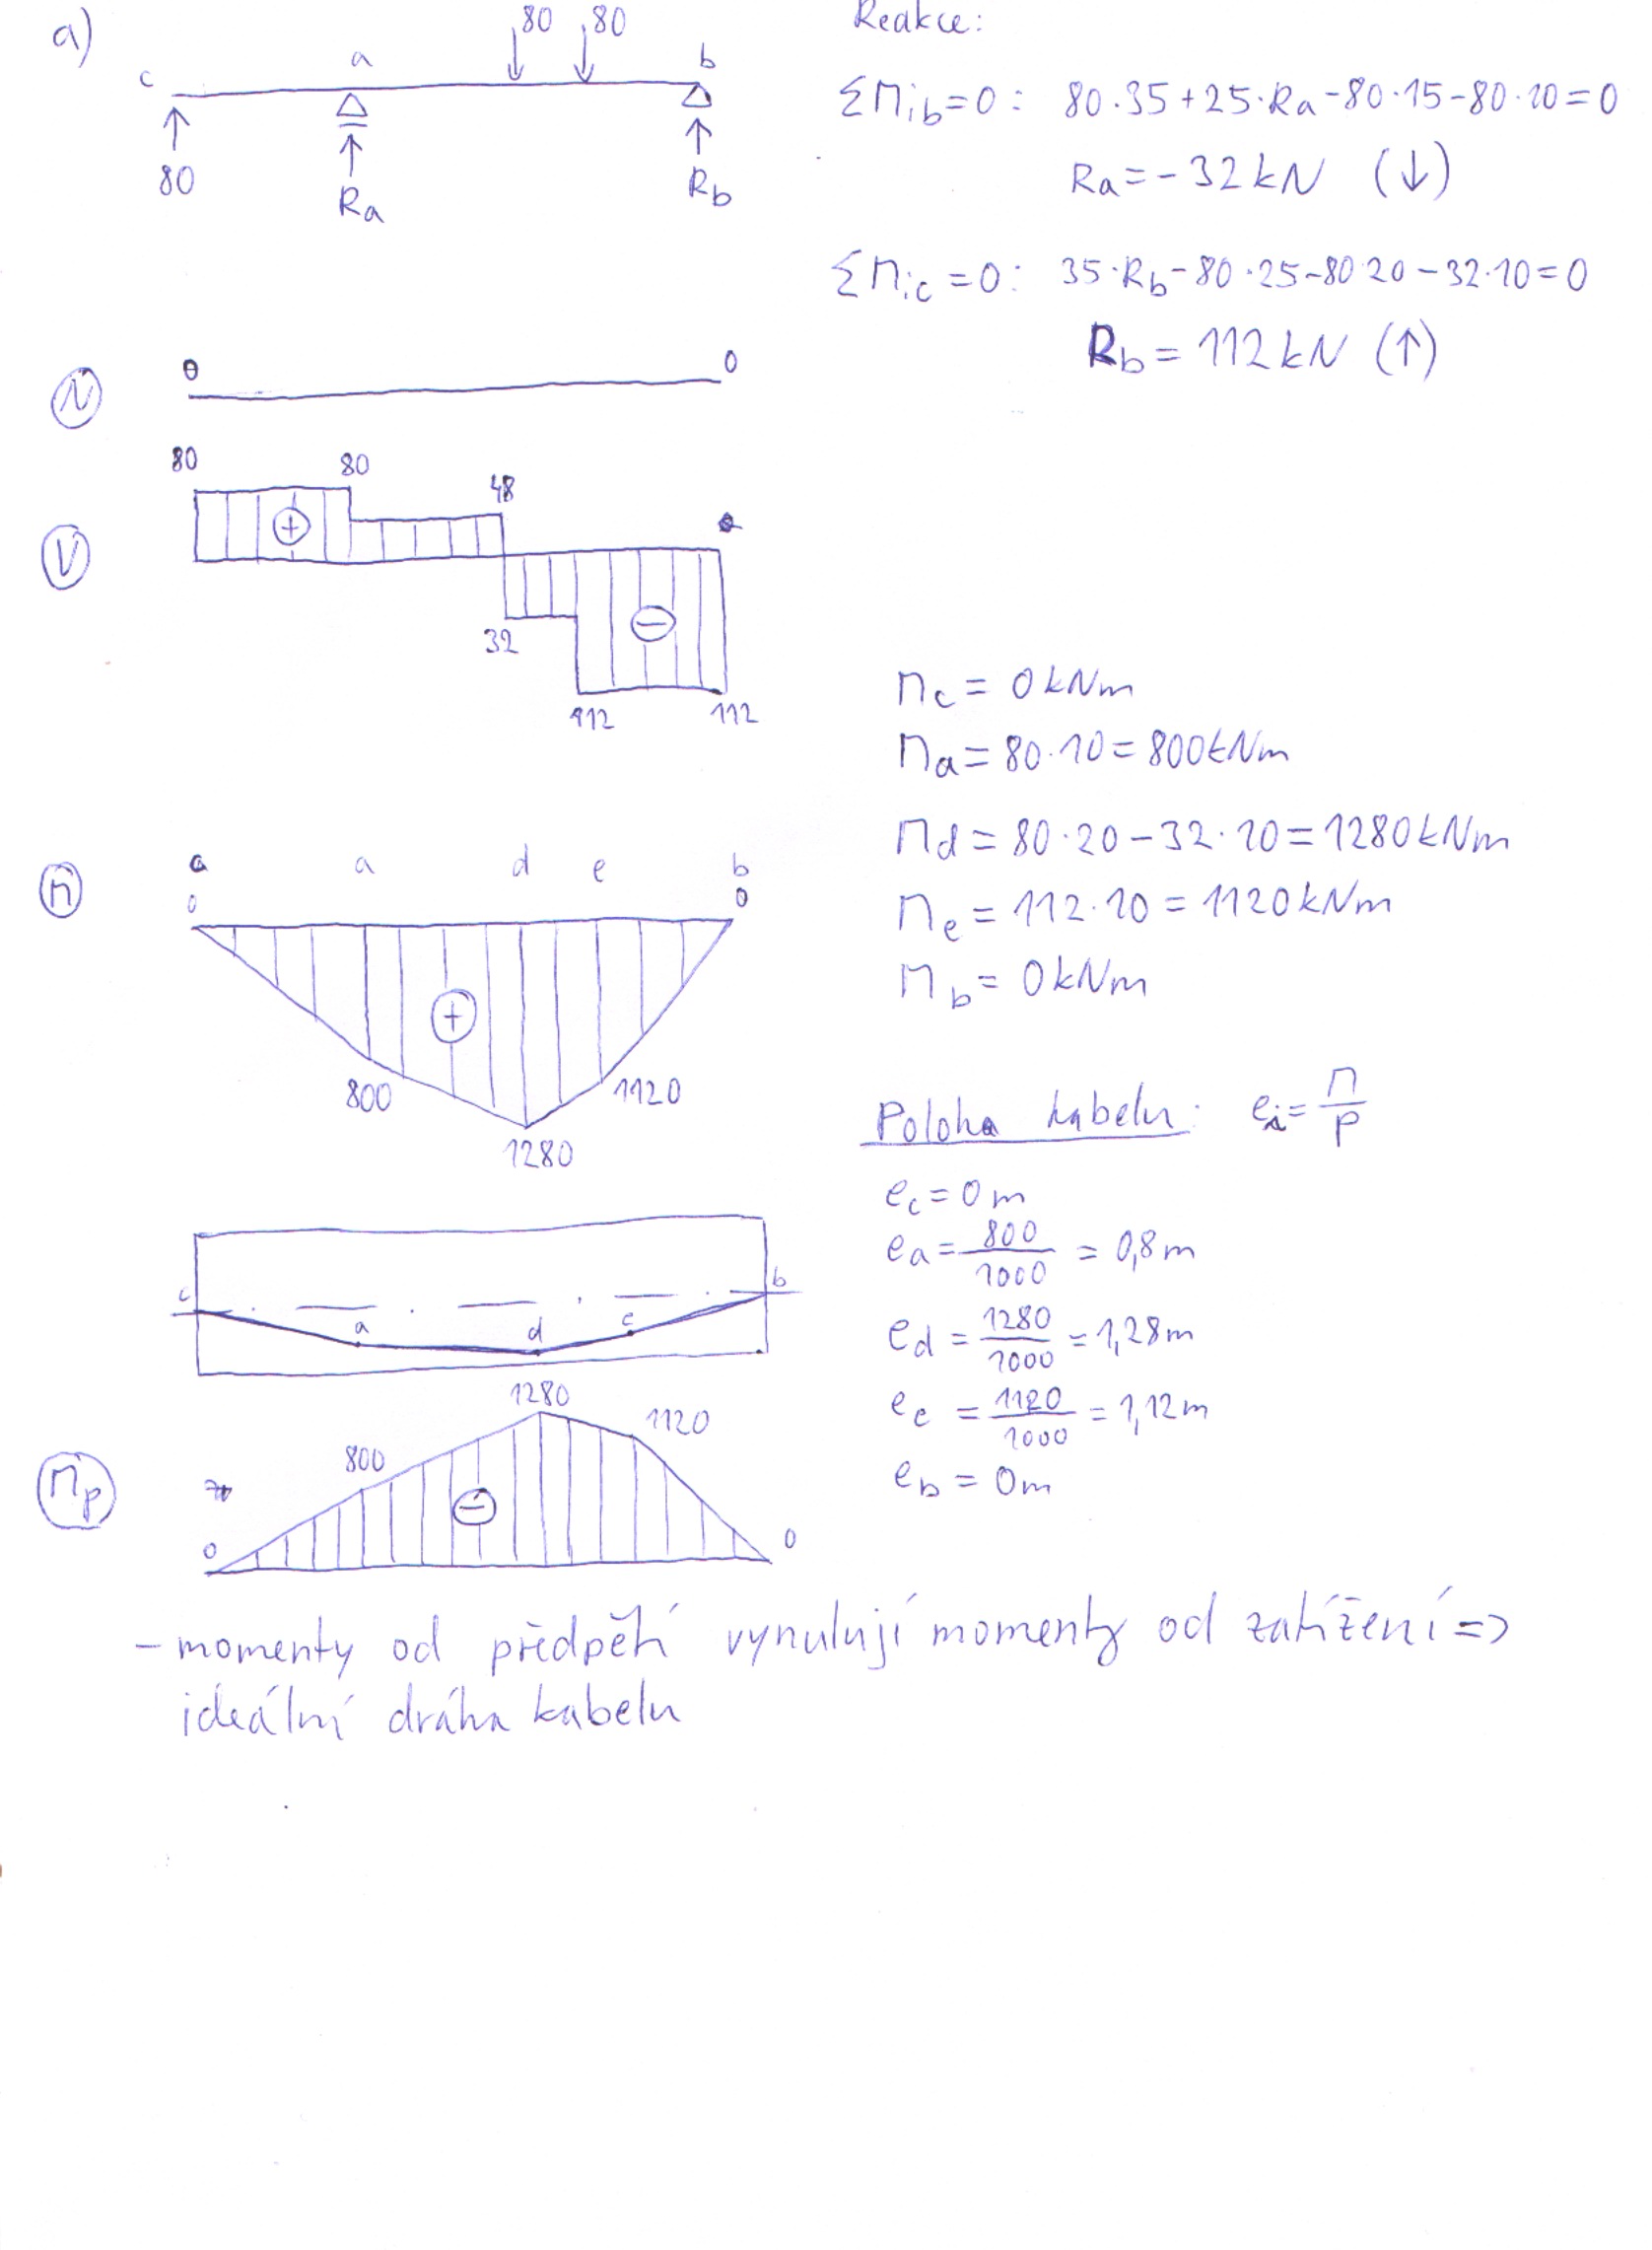 a)
80 80
c a b
80 Ra Rb
Reakce:
ΣMib=0: 80·35+25·Ra-80·15-80·10=0
Ra=-32kN (↓)
ΣMic=0: 35·Rb-80·25-80·20-32·10=0
Rb=112kN (↑)
N
0 0
V
80 80 48
+
-
32
112 112
Mc= 0kNm
Ma=80·10=800kNm
Md=80·20-32·10=1280kNm
Me=112·10=1120kNm
Mb=0kNm
M
a d e b
0 0
+
800 1120
1280
Poloha kabelu: ei=M/P
ec=0m
ea=800/1000=0,8m
ed=1280/1000=1,28m
ee=1120/1000=1,12m
eb=0m
c a d e b
Mp
1280
800 1120
-
0 0
- momenty od předpětí vynulují momenty od zatížení =>
ideální dráha kabelu